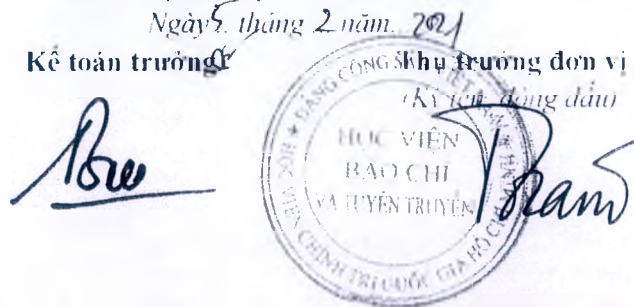 Ngày 5 tháng 2 năm 2021
Kế toán trưởng
Thủ trưởng đơn vị
(Ký tên, đóng dấu)
ĐẢNG CỘNG SẢN VIỆT NAM
HỌC VIỆN
BÁO CHÍ
VÀ TUYÊN TRUYỀN
HỌC VIỆN CHÍNH TRỊ QUỐC GIA HỒ CHÍ MINH